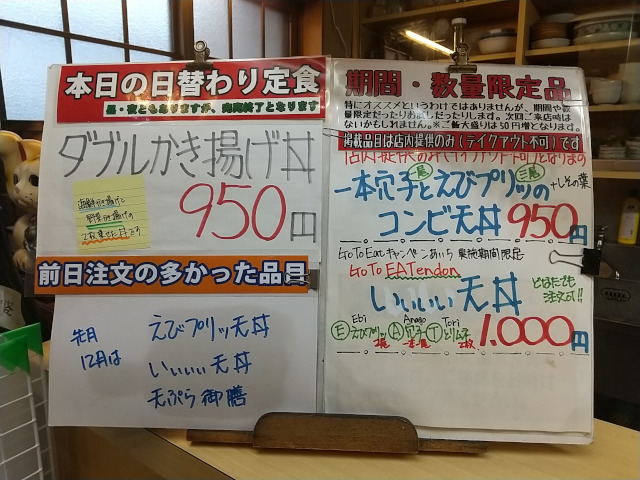 本日の日替わり定食
昼・夜ともありますが、売切終了となります
ダブルかき揚げ丼
海鮮かき揚げと
野菜かき揚げの
2枚乗せた丼です
950円
前日注文の多かった品具
先月
12月は
えびプリッ天丼
いいぃぃ天丼
天ぷら御膳
期間・数量限定品
特にオススメというわけではありませんが、期間や数
量限定だったりお試しだったりします。次回ご来店時は
ないかもしれません。※ご飯大盛りは50円増となります。
掲載品目は店内提供のみ(テイクアウト不可)です
一尾 三尾
一本穴子とえびプリッの
+しその葉
コンビ天丼 950円
Go To Eatキャンペーンあいち実施期間限定
Go To EATendon
いいぃぃ天丼
どなたでも
注文可!!
Ebi Anago Tori
Ⓔえびプリッ Ⓐ穴子 Ⓣとりムネ
2尾 一本 2枚
1.000円